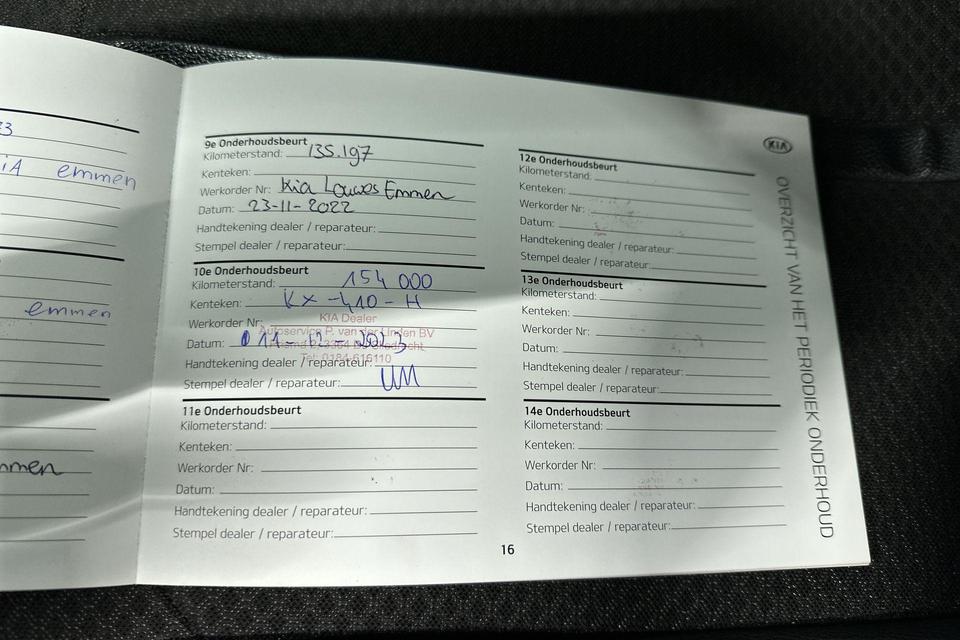 3
iA emmen
emmen
mmen
9e Onderhoudsbeurt
Kilometerstand: 135.197
Kenteken:
Werkorder Nr: Kia Louwes Emmen
Datum: 23-11-2022
Handtekening dealer / reparateur:
Stempel dealer / reparateur:
10e Onderhoudsbeurt
Kilometerstand: 154 000
Kenteken: KX-410-H
Werkorder Nr:
KIA Dealer
Autoservice P. van der Linden BV
Datum: 11-12-2023
Tel: 0184-616110
Handtekening dealer / reparateur:
Stempel dealer / reparateur:
11e Onderhoudsbeurt
Kilometerstand:
Kenteken:
Werkorder Nr:
Datum:
Handtekening dealer / reparateur:
Stempel dealer / reparateur:
12e Onderhoudsbeurt
Kilometerstand:
Kenteken:
Werkorder Nr:
Datum:
Handtekening dealer / reparateur:
Stempel dealer / reparateur:
13e Onderhoudsbeurt
Kilometerstand:
Kenteken:
Werkorder Nr:
Datum:
Handtekening dealer / reparateur:
Stempel dealer / reparateur:
14e Onderhoudsbeurt
Kilometerstand:
Kenteken:
Werkorder Nr:
Datum:
Handtekening dealer / reparateur:
Stempel dealer / reparateur:
KIA
OVERZICHT VAN HET PERIODIEK ONDERHOUD
16